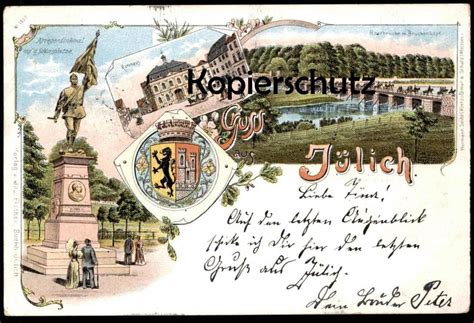 Kriegerdenkmal
auf d. Schlossplatze.
Rathaus
Roerbrücke m. Brückenkopf.
Kopierschutz
Gruss
aus
Jülich.
Liebe Tina!
Auf den letzten Augenblick
schicke ich Dir hier den letzten
Gruß aus Jülich.
Dein Bruder Peter